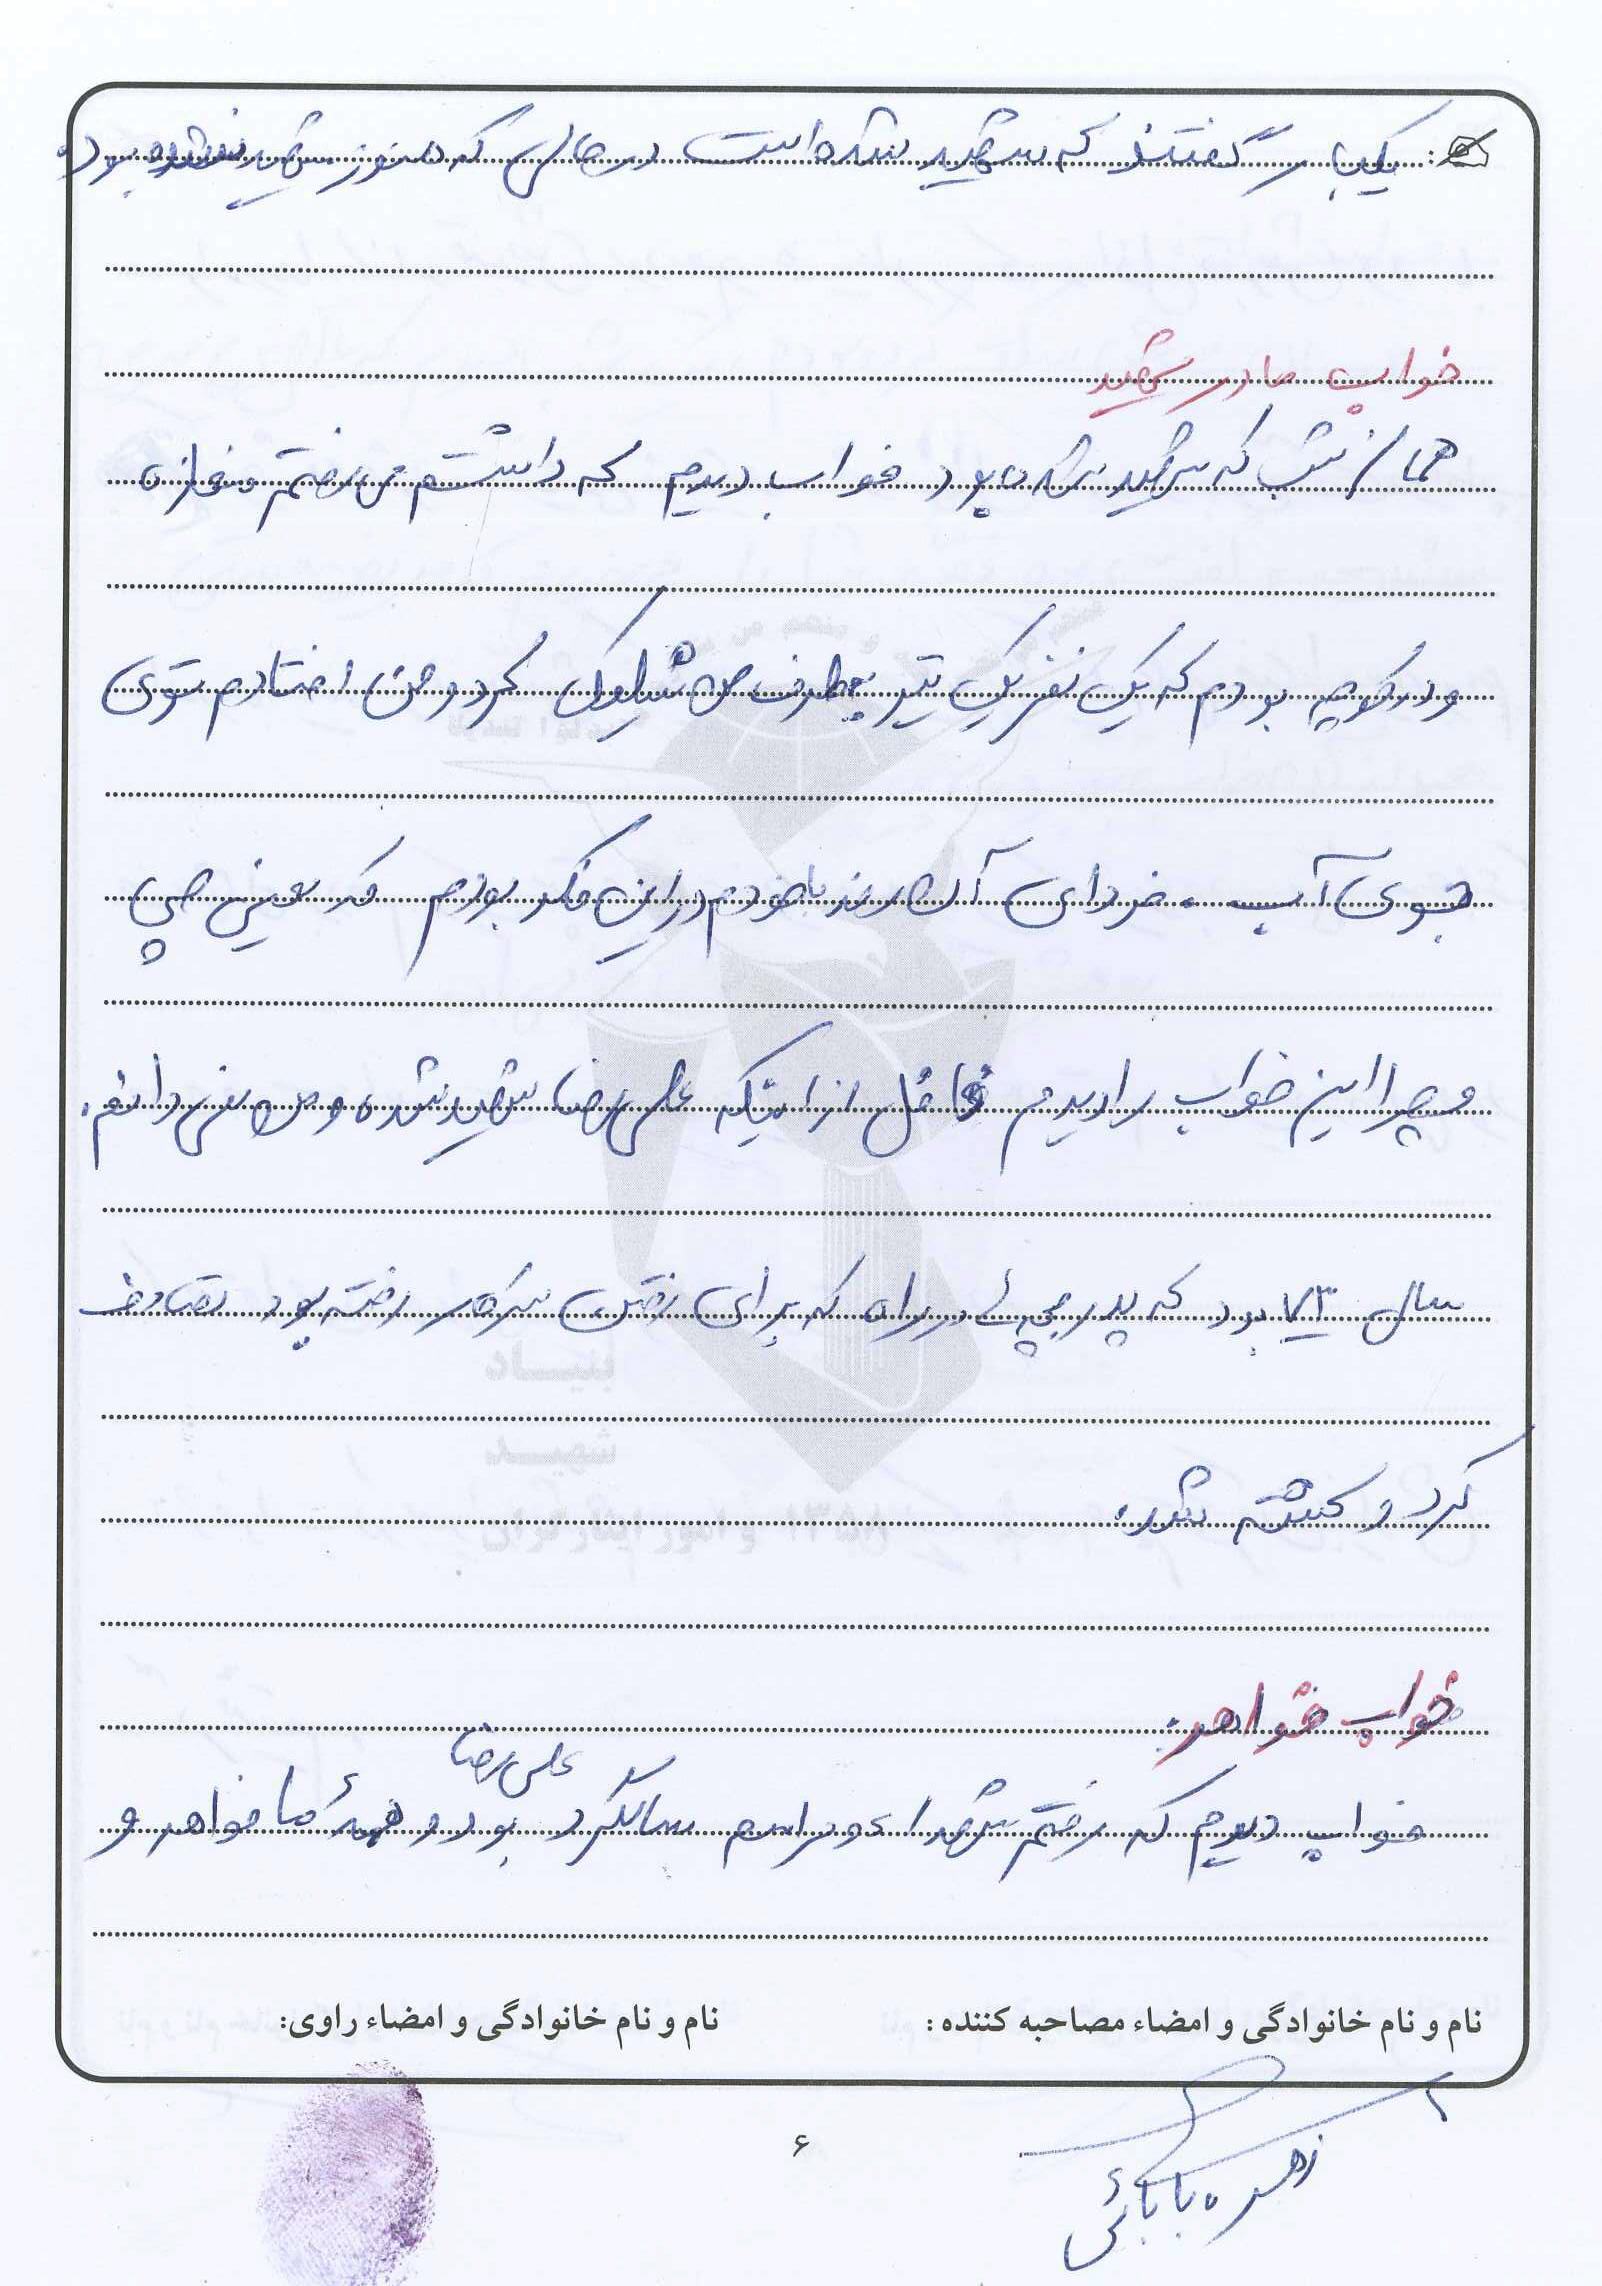 یکبار گفتند که شهید شده است در حالی که هنوز شهید نشده بود.
خواب مادر شهید
همان شب که شهید شده بود خواب دیدم که داشتم می رفتم مغازه
و در کوچه بودم که یک نفر یک تیر بطرف من شلیک کرد و من افتادم توی
جوی آب . فردای آن روز با خودم در این فکر بودم که یعنی چی
و چرا این خواب را دیدم غافل از اینکه علی رضا شهید شده و من نمی دانم.
سال ۷۳ بود که پدر بچه در راه که برای رفتن سرکار رفته بود تصادف
کرد و کشته شد.
خواب خواهر:
علی رضا
خواب دیدم که رفتم شهدا مراسم سالگرد بود و همهٔ ما خواهر و
نام و نام خانوادگی و امضاء مصاحبه کننده :
نام و نام خانوادگی و امضاء راوی:
زهره بابائی
۶